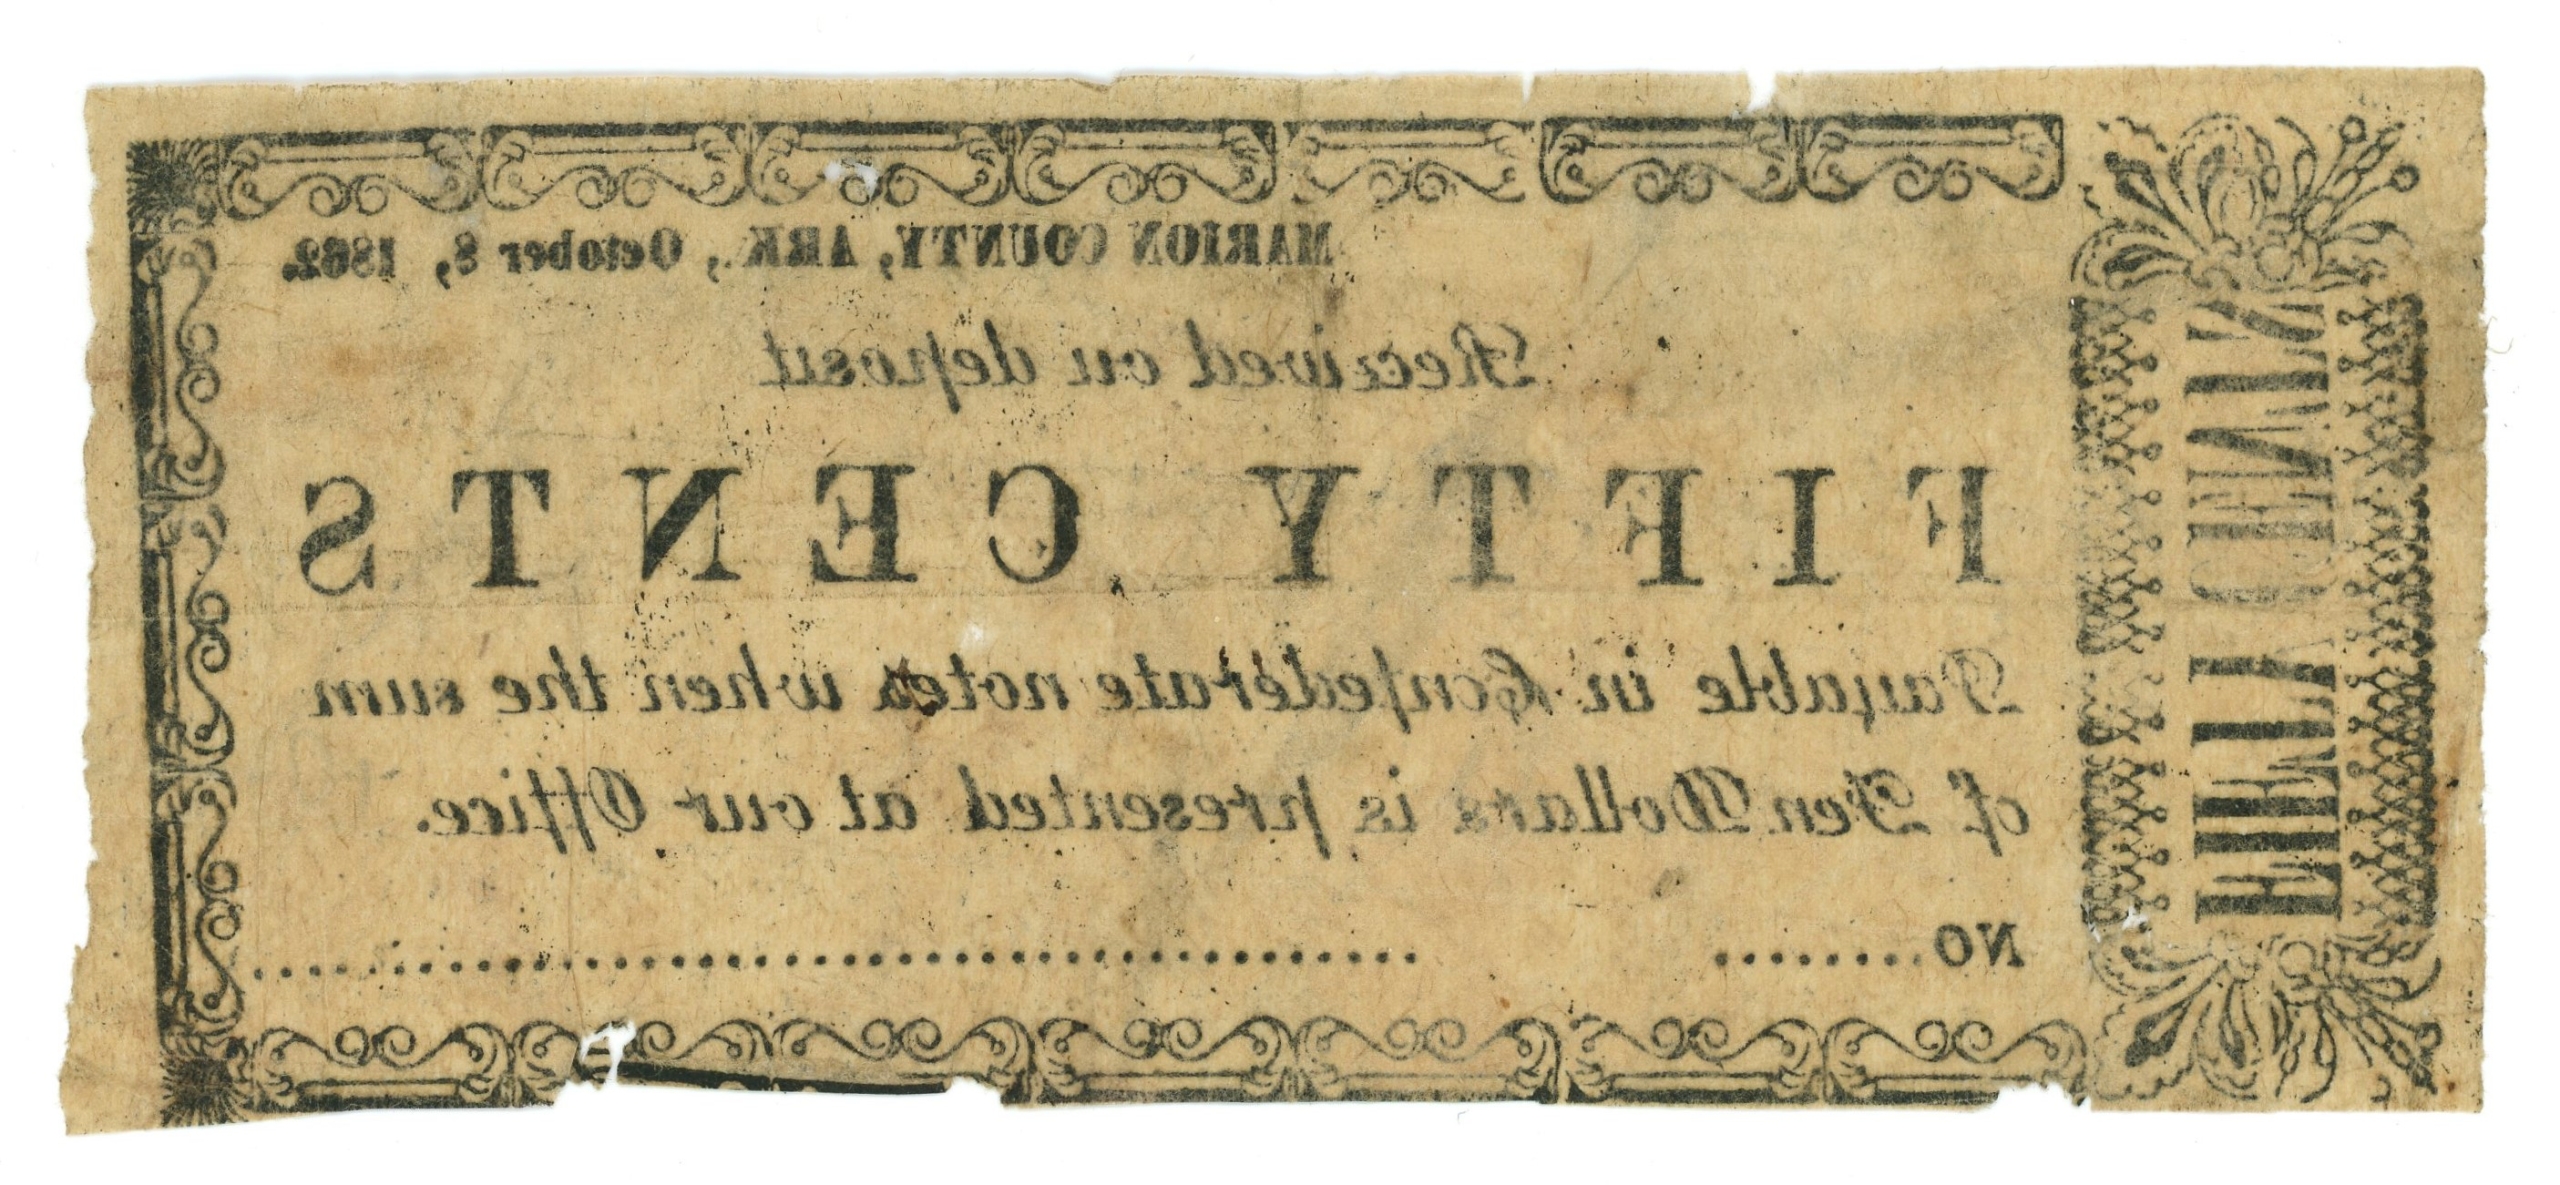 MARION COUNTY, ARK., October 8, 1862.
Received on deposit
FIFTY CENTS
Payable in Confederate notes when the sum
of Ten Dollars is presented at our Office.
NO......... ........................................
FIFTY CENTS